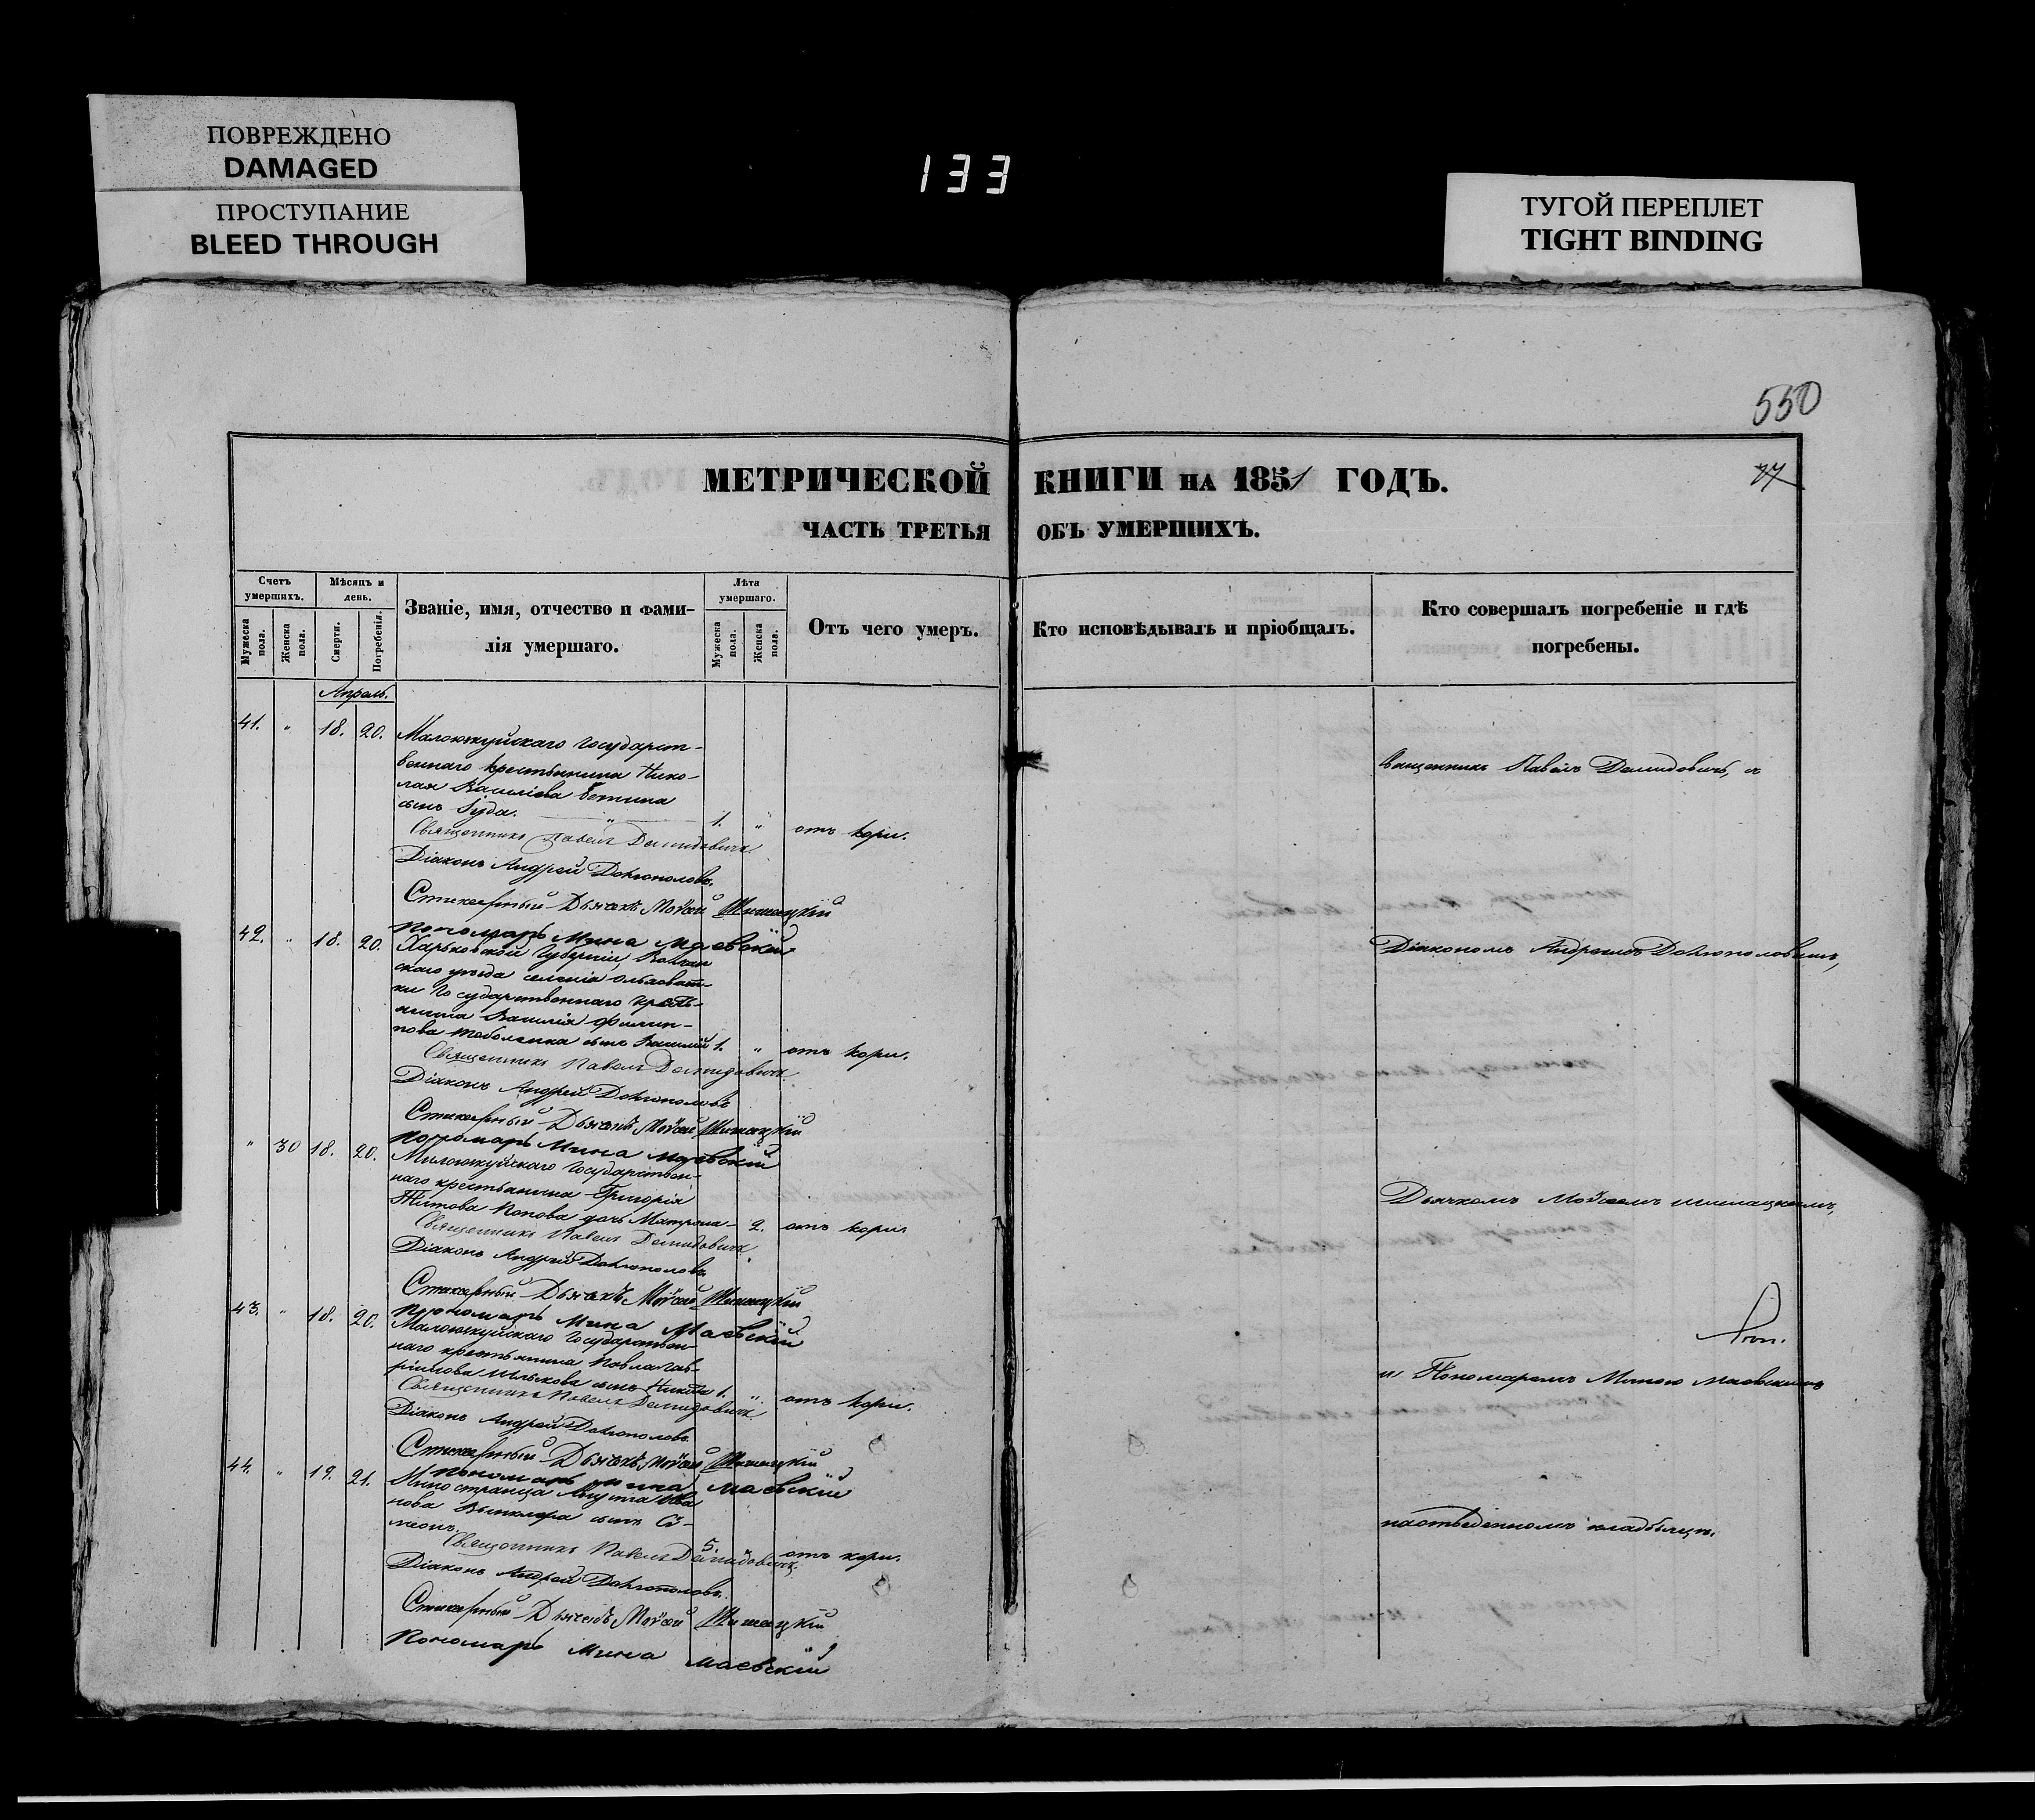 ПОВРЕЖДЕНО
DAMAGED
ПРОСТУПАНИЕ
BLEED THROUGH
133
ТУГОЙ ПЕРЕПЛЕТ
TIGHT BINDING
550
МЕТРИЧЕСКОЙ КНИГИ НА 1851 ГОДЪ.
77
ЧАСТЬ ТРЕТЬЯ ОБЪ УМЕРШИХЪ.
Счетъ умершихъ.
Мужеска пола.
Женска пола.
Мѣсяцъ и день.
Смерти.
Погребенія.
Званіе, имя, отчество и фами-
лія умершаго.
Лѣта умершаго.
Мужеска пола.
Женска пола.
Отъ чего умеръ.
Кто исповѣдывалъ и пріобщалъ.
Кто совершалъ погребеніе и гдѣ
погребены.
Апрель.
41. " 18. 20. Государст-
веннаго крестьянина Нико-
лая Василіева
сынъ Іуда. 1. " отъ кори.
Священникъ Павелъ Демидовичъ
Діаконъ Андрей Долгополовъ.
Стихарный Дьячекъ Мойсей Шишацкій
Пономарь Мина Маевскій
Священникъ Павелъ Демидовичъ, с
42. " 18. 20. Харьковской Губерніи, Волчан
скаго уезда селенія Ольховат-
ки Государственнаго кресть-
янина Василія Филип-
пова сынъ Василій 1. " отъ кори.
Священникъ Павелъ Демидовичъ
Діаконъ Андрей Долгополовъ
Стихарный Дьячекъ Мойсей Шишацкій
Пономарь Мина Маевскій
Діакономъ Андреемъ Долгополовымъ,
" 30 18. 20. Государствен-
наго крестьянина Григорія
Титова Попова дочь Матрона - 2. отъ кори.
Священникъ Павелъ Демидовичъ
Діаконъ Андрей Долгополовъ
Стихарный Дьячекъ Мойсей Шишацкій
Пономарь Мина Маевскій
Дьячкомъ Мойсеемъ Шишацкимъ,
43. " 18. 20. Государствен-
наго крестьянина Павла Гав-
рилова сынъ Никита 1. " отъ кори.
Священникъ Павелъ Демидовичъ
Діаконъ Андрей Долгополовъ
Стихарный Дьячекъ Мойсей Шишацкій
Пономарь Мина Маевскій
и Пономаремъ Миною Маевскимъ
44. " 19. 21. Иностранца Августа Ива
нова сынъ Си-
меонъ. 5. " отъ кори.
Священникъ Павелъ Демидовичъ.
Діаконъ Андрей Долгополовъ.
Стихарный Дьячекъ Мойсей Шишацкій
Пономарь Мина Маевскій
кладбищѣ.